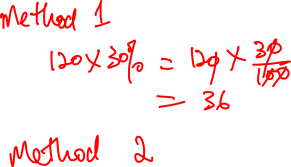 Method 1
120 × 30% = 120 × 30/100
= 36
Method 2